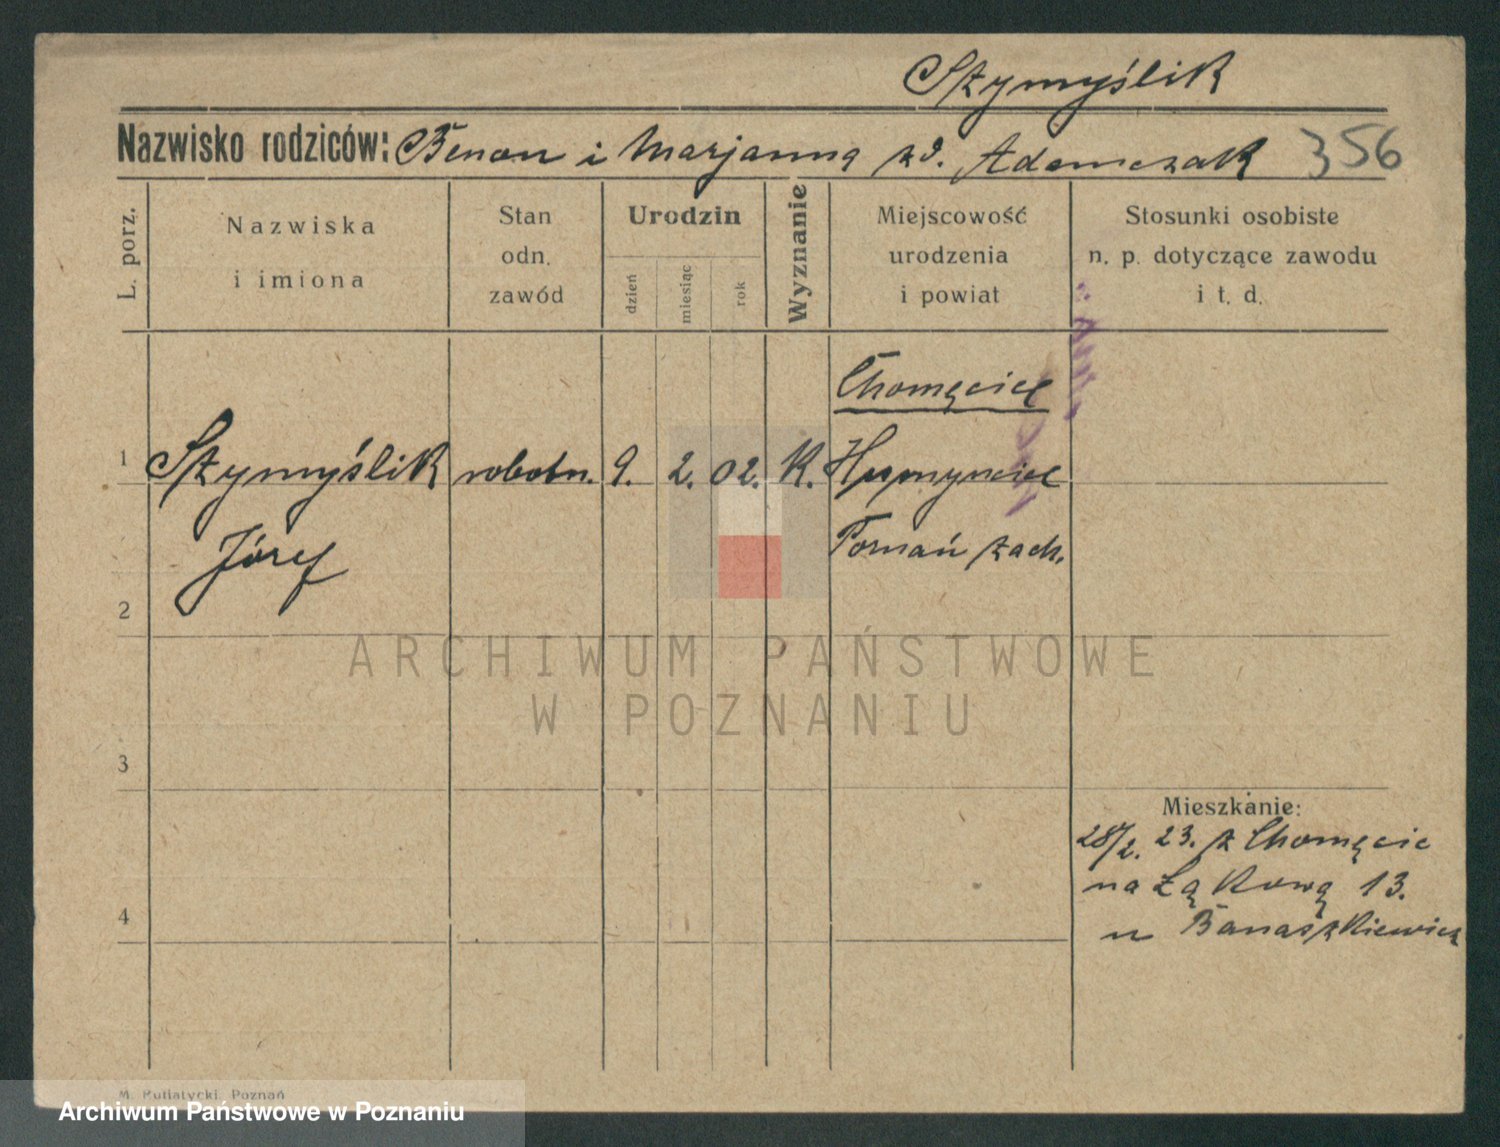 Szymyślik
Nazwisko rodziców: Benon i Marjanna zd. Adamczak 356
L. porz.
Nazwiska
i imiona
Stan
odn.
zawód
Urodzin
dzień
miesiąc
rok
Wyznanie
Miejscowość
urodzenia
i powiat
Stosunki osobiste
n. p. dotyczące zawodu
i t. d.
Chomęcice
1 Szymyślik robotn. 9. 2. 02. K.
Józef Poznań zach.
2
ARCHIWUM PAŃSTWOWE
W POZNANIU
3
Mieszkanie:
28/2. 23. z Chomęcic
na Łąkową 13.
4
u Banaszkiewicz
M. Putiatycki, Poznań
Archiwum Państwowe w Poznaniu